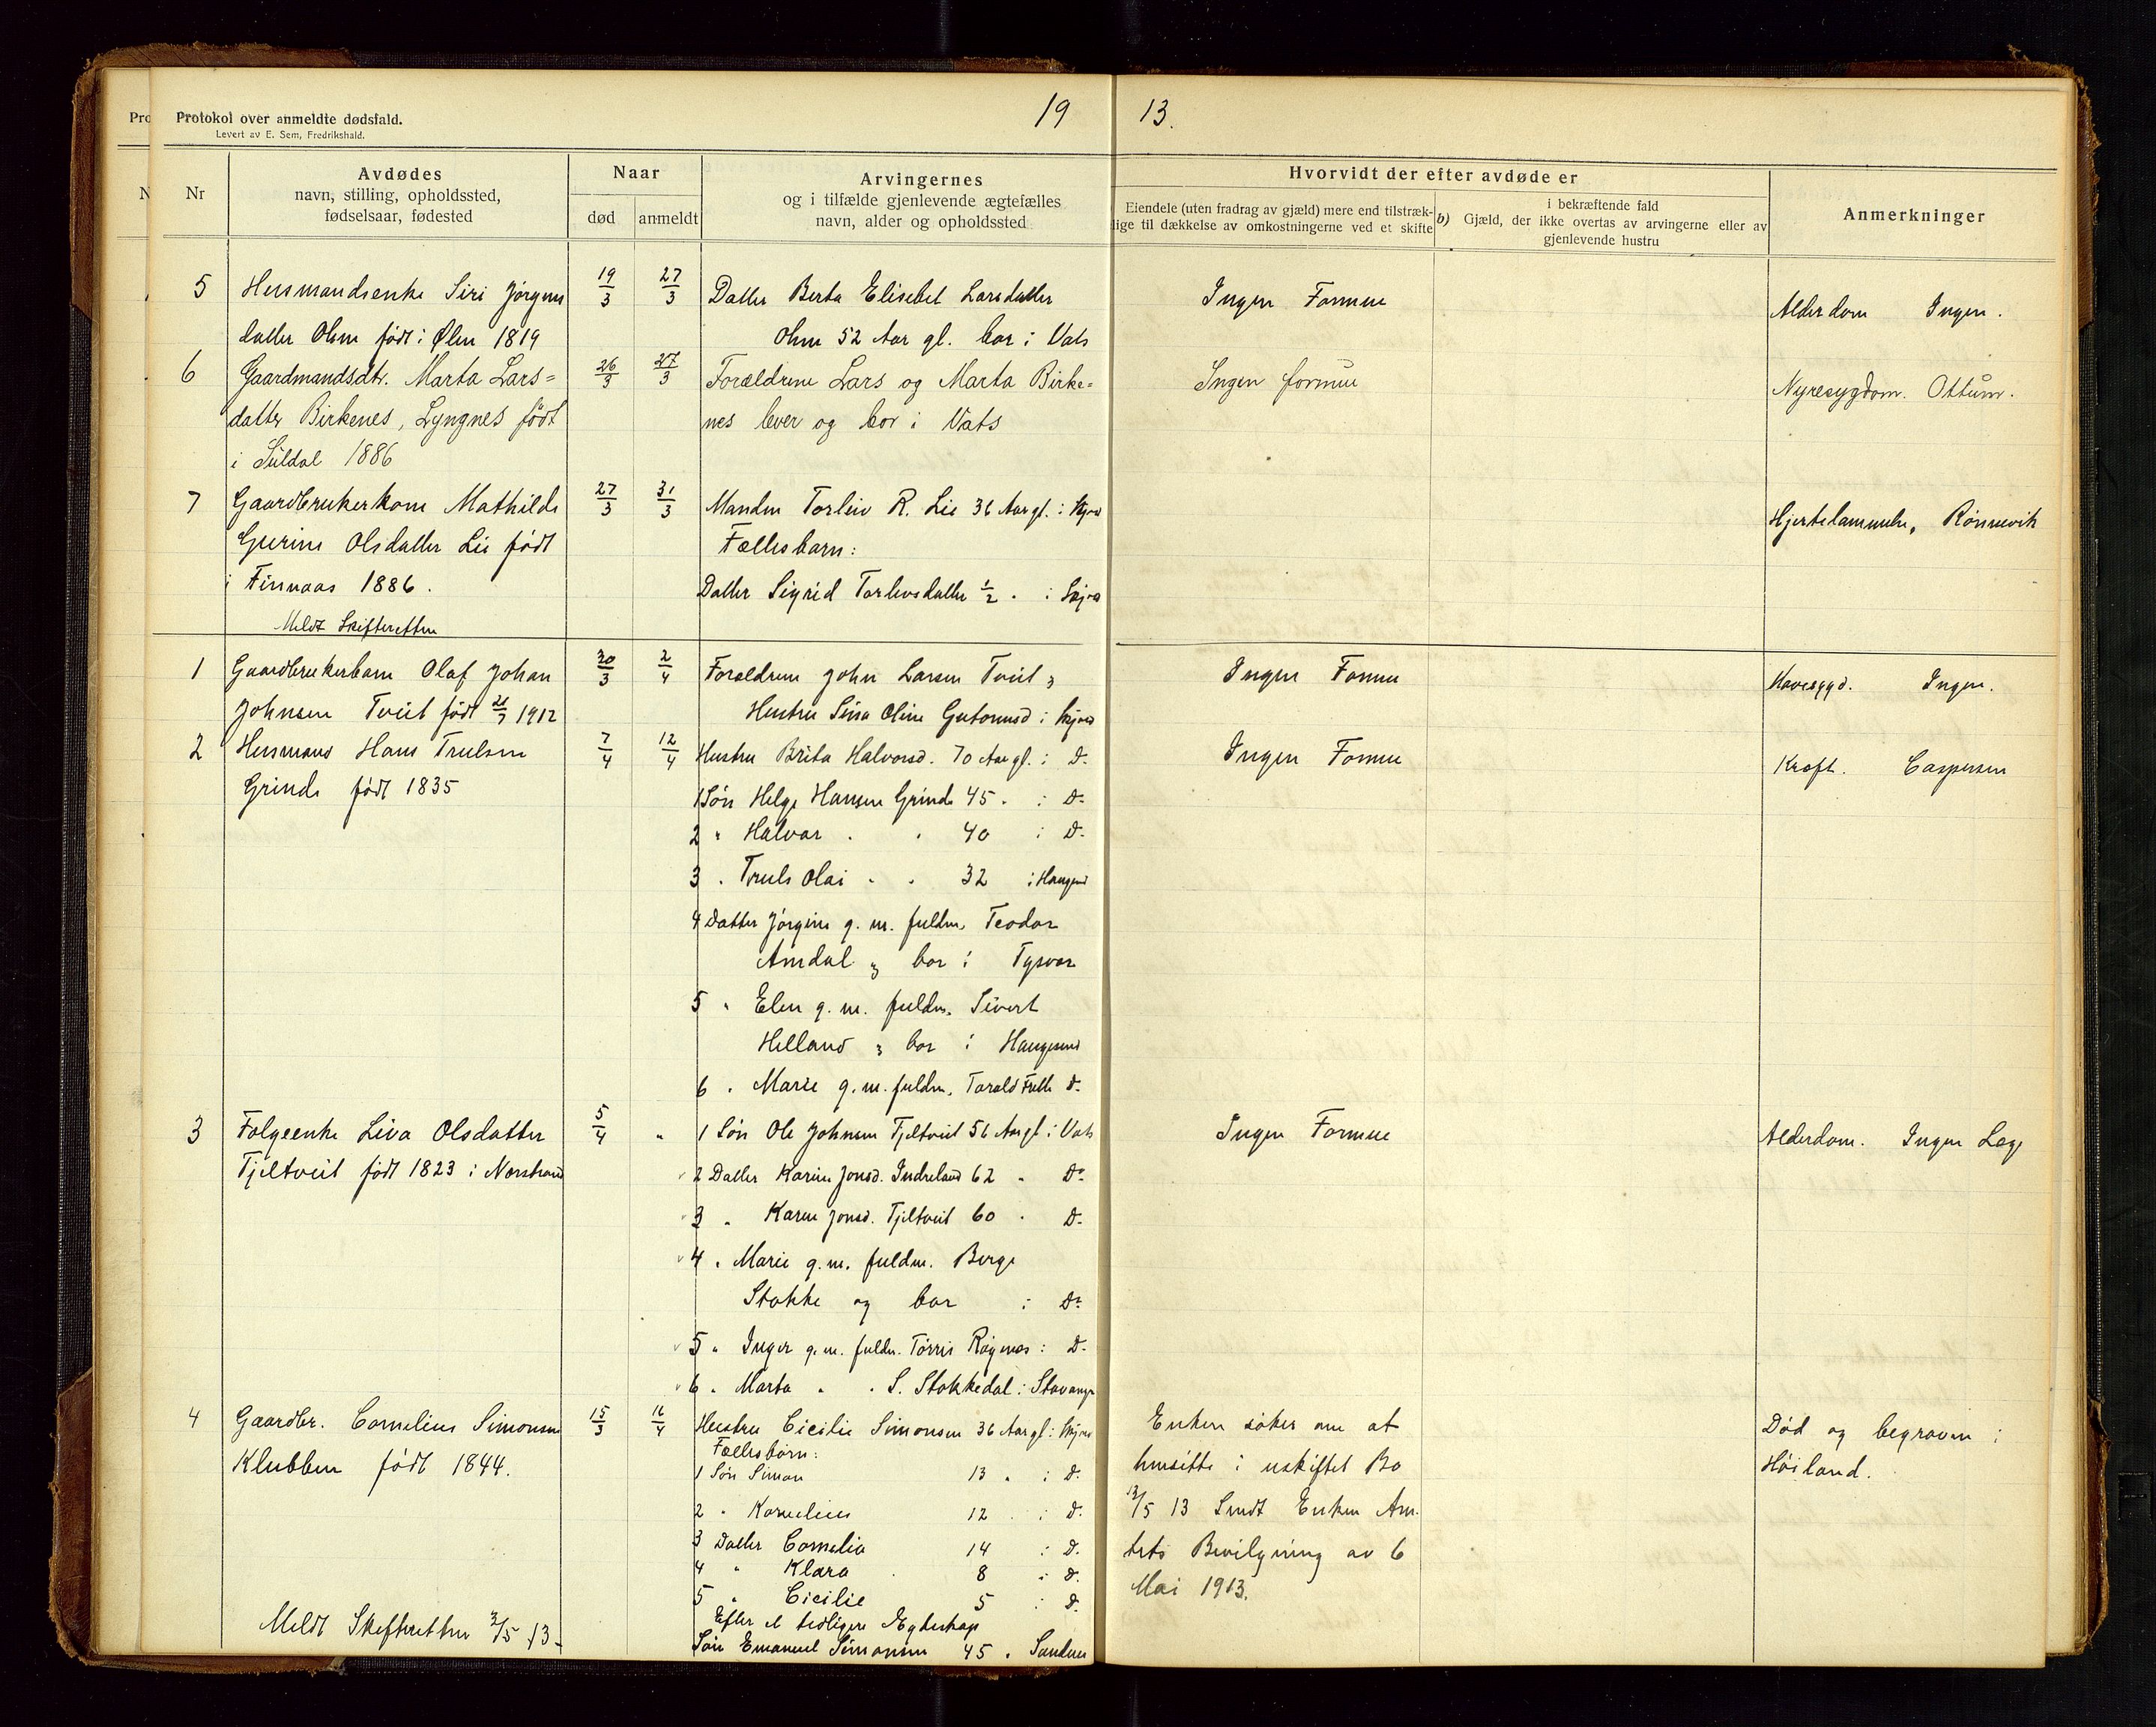 Protokol over anmeldte dødsfald.
Levert av E. Sem, Fredrikshald.
1913.
Nr
Avdødes
navn, stilling, opholdssted,
fødselsaar, fødested
Naar
død
anmeldt
Arvingernes
og i tilfælde gjenlevende ægtefælles
navn, alder og opholdssted
Hvorvidt der efter avdøde er
Eiendele (uten fradrag av gjæld) mere end tilstræk-
lige til dækkelse av omkostningerne ved et skifte
b)
i bekræftende fald
Gjæld, der ikke overtas av arvingerne eller av
gjenlevende hustru
Anmerkninger
5 Husmandsenke Siri Jørgens 19/3 27/3 Datter Berta Elisebet Larsdatter Ingen Formue Alderdom Ingen.
datter Ohm født i Ølen 1819 Ohm 52 Aar gl. bor i Vats
6 Gaardmandsdtr. Marta Lars= 26/3 27/3 Forældrene Lars og Marta Birke= Ingen formue Nyresygdom. Ottum.
datter Birkenes, Lyngnes født nes lever og bor i Vats
i Suldal 1886
7 Gaardbrukerkone Mathilde 27/3 31/3 Manden Torleiv R. Lie 36 Aar gl. i Skjold Hjertelammelse, Rönnevik
Gurine Olsdatter Lie født Fællesbarn:
i Finnaas 1886. Datter Sigrid Torleivsdatter 1/2 " i Skjold
Meldt Skifteretten
1 Gaardbrukerbarn Olaf Johan 30/3 2/4 Forældrene John Larsen Tveit og Ingen Formue Ingen.
Johnsen Tveit født 1912 Hustru Sina Oline Gutormsd i Skjold
2 Husmand Hans Trulsen 7/4 12/4 Hustru Brita Halvorsd. 70 Aar gl. i Do Ingen Formue Kræft. Caspersen
Grinde født 1835 1 Søn Helge Hansen Grinde 45 " i Do
2 " Halvar " " 40 i Do
3 " Truls Olai " " 32 i Haugesd
4 Datter Jørgine g. m. fuldm. Teodor
Amdal og bor i Tysvær
5 " Elen g. m. fuldm. Sivert
Helland og bor i Haugesund
6 " Marie g. m. fuldm. Torald Do
3 Folgeenke Liva Olsdatter 5/4 " 1 Søn Ole Johnsen Tjeltveit 56 Aar gl. i Vats Ingen Formue Alderdom. Ingen Læge
Tjeltveit født 1823 i Nærstrand 2 Datter Karine Jonsd. Indreland 62 " Do
3 " Karen Jonsd. Tjeltveit 60 " Do
4 " Marie g. m. fuldm. Berge
Stokke og bor i Do
5 " Inger g. m. fuldm. Törris Rognes i Do
6 " Marta " " S. Stokkedal i Stavanger
4 Gaardbr. Cornelius Simonsen 15/3 16/4 Hustru Cicilie Simonsen 36 Aar gl. i Skjold Enken søker om at Død og begraven i
Klubben født 1844. Fællesbørn: hensitte i uskiftet Bo Høiland.
1 Søn Simon 13 " i Do
2 " Kornelius 12 " i Do 13/5 13 Sendt Enken Am-
3 Datter Cornelia 14 i Do tets Bevilgning av 6
4 " Klara 8 i Do Mai 1913.
5 " Cicilie 5 i Do
Efter et tidligere Ægteskap
Meldt Skifteretten 3/5 13. Søn Emanuel Simonsen 45 " Sandnes